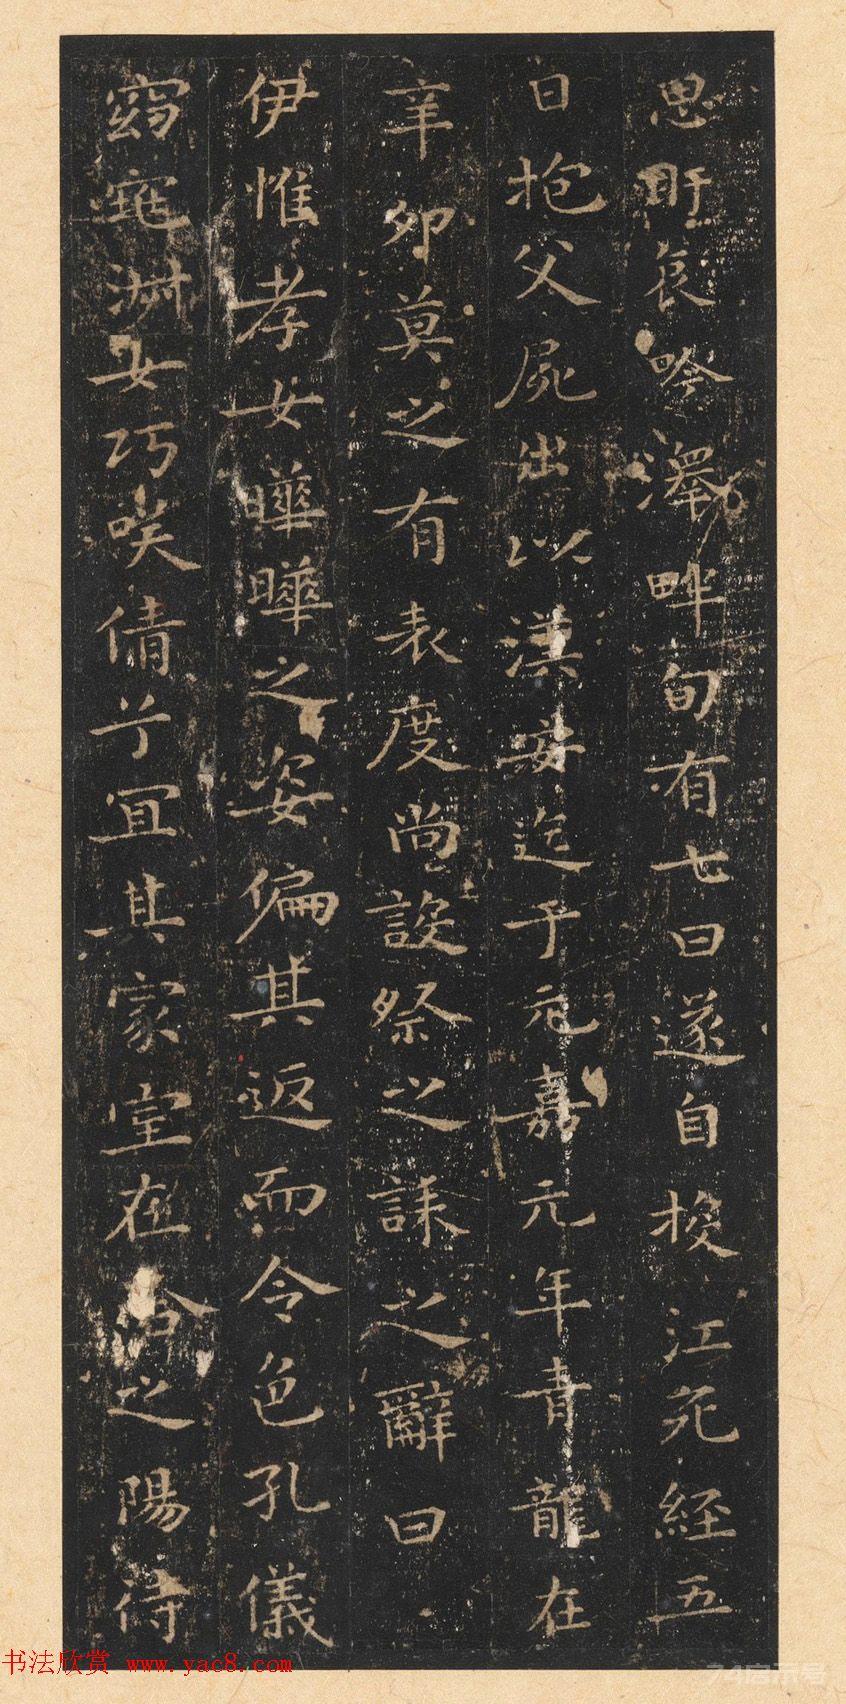 思盱哀吟澤畔旬有七日遂自投江死經五
日抱父屍出以漢安迄于元嘉元年青龍在
辛卯莫之有表度尚設祭之誄之辭曰
伊惟孝女曄曄之姿偏其返而令色孔儀
窈窕淑女巧笑倩兮宜其家室在洽之陽待
书法欣赏 www.yac8.com